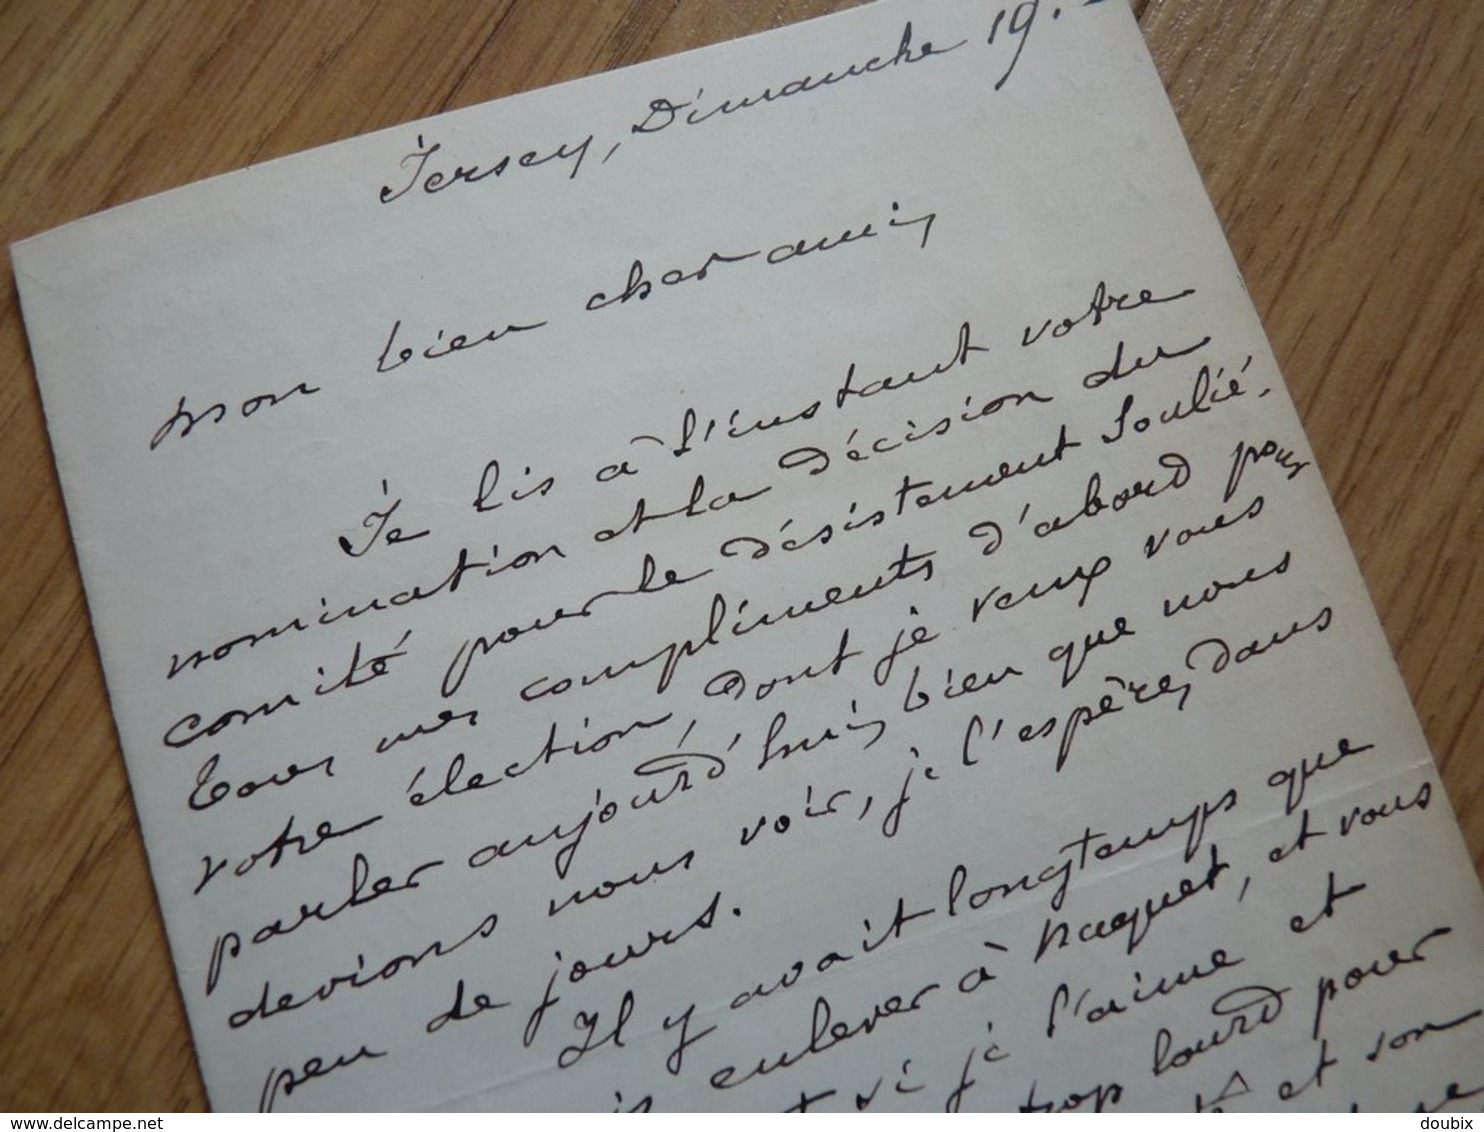 Jersey, Dimanche 19.
mon bien cher ami,
Je lis à l'instant votre
nomination et la décision du
comité pour le désistement Soulié.
Tous mes compliments d'abord pour
votre élection, dont je veux vous
parler aujourd'hui, bien que nous
devions nous voir, je l'espère, dans
peu de jours.
Il y avait longtemps que
enlever à Naquet, et vous
si je l'aime et
trop lourd pour
et son
delcampe.net
doubix